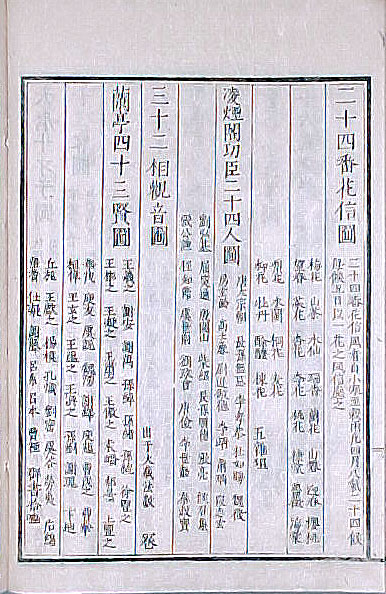 二十四番花信圖
二十四番花信風者自小寒至穀雨凡四月八氣二十四候
每候五日以一花之風信應之
梅花 山茶 水仙 瑞香 蘭花 山礬 迎春 櫻桃
望春 菜花 杏花 李花 桃花 棣棠 薔薇 海棠
梨花 木蘭 桐花 麥花
柳花 牡丹 酴醾 楝花 五雜俎
凌煙閣功臣二十四人圖
唐太宗朝 長孫無忌 李孝恭 杜如晦 魏徵
房玄齡 高士廉 尉遲敬德 李靖 蕭瑀 段志玄
劉弘基 屈突通 殷開山 柴紹 長孫順德 張亮 侯君集
張公謹 程知節 虞世南 劉政會 唐儉 李世勣 秦叔寶
三十二相觀音圖
出于大藏法數
蘭亭四十三賢圖
王羲之 謝安 謝萬 孫綽 徐豐之
王凝之 王肅之 王徽之 袁嶠之 郗曇
華茂 庾友 虞說 魏滂 謝繹 庾蘊 曹茂之 曹華
桓偉 王玄之 王蘊之 王渙之 孫嗣 卞迪
丘旄 王獻之 楊模 孔熾 劉密 虞谷 勞夷 后綿
華耆 謝藤 呂系 呂本 曹禋